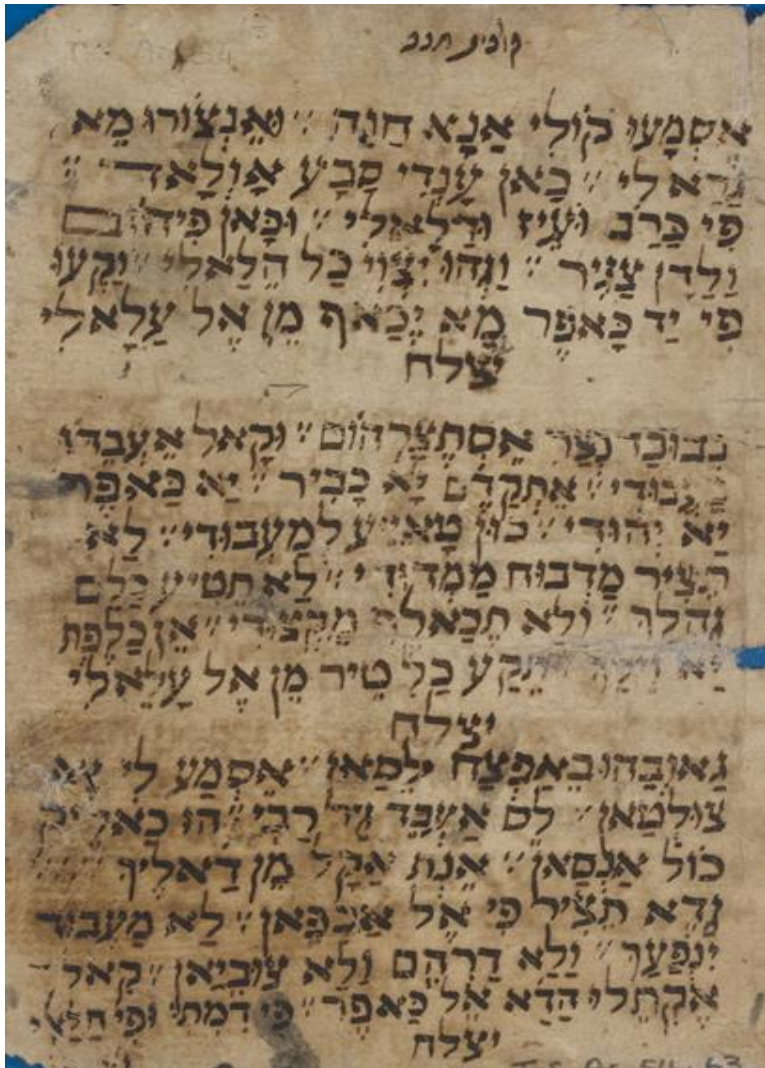 אִסְמָעוּ קוֹלִי אַנָא חַנָה ״ וַאֻנְצֹורוּ מַא
גַרַא לִי ״ כַּאן עַנְדִי סַבַע אָוְלַאד ״
פִי פַרַב וֹעִיז וּדַלַאלִי ״ וכַּאן פִיהוֹם
וַלַדן צַגִיר ״ וַגְהוּ יִצְוִי כַל הַלַאלִי ״ וַקַעוּ
פִי יַד כָּאפִר מַא יְכַאף מִן אֶל עַלַאלִי
יצלח
נבוכד נצר אִסְתֶצַרהוֹם ״ וקַאל אֻעְבֻדוּ
אִתְקַדִם יַא כָבִיר ״ יַא כַּאפִר
יַא יִהוּדִי ״ כון טַאיִיע למַעְבוּדִי ״ לַא
תִצִיר מַדְבוּח מַמְדוּדִי ״ לַא תִטִיע
גַהְלַך ״ ולַא תְכַאלִף מַקְצוּדִי ״ אִן כַלַפְת
תַקַע כַל טִיר מִן אֶל עַלַאלִי
יצלח
גַאוְבַהוּ בִאַפְצַח לִסַאן ״ אִסְמַע לִי יַא
צוּלְטַאן ״ לַם אַעְבֻד גִיר רַבִי ״ הוּ כַאלִיק
כוֹל אִנְסַאן ״ אִנְת אַקַל מִן דַאלִיך
גַדַא תִצִיר פִי אֶל אַכְפַאן ״ לַא מַעְבוּד
יִנְפַעַך ״ וַלַא דִרְהֶם וַלַא צוּבְיַאן ״ קַאל
אֻקְתֻלוּ הַדַא אֶל כַּאפִר ״ פִי דִמְתִי וּפִי
יצלח